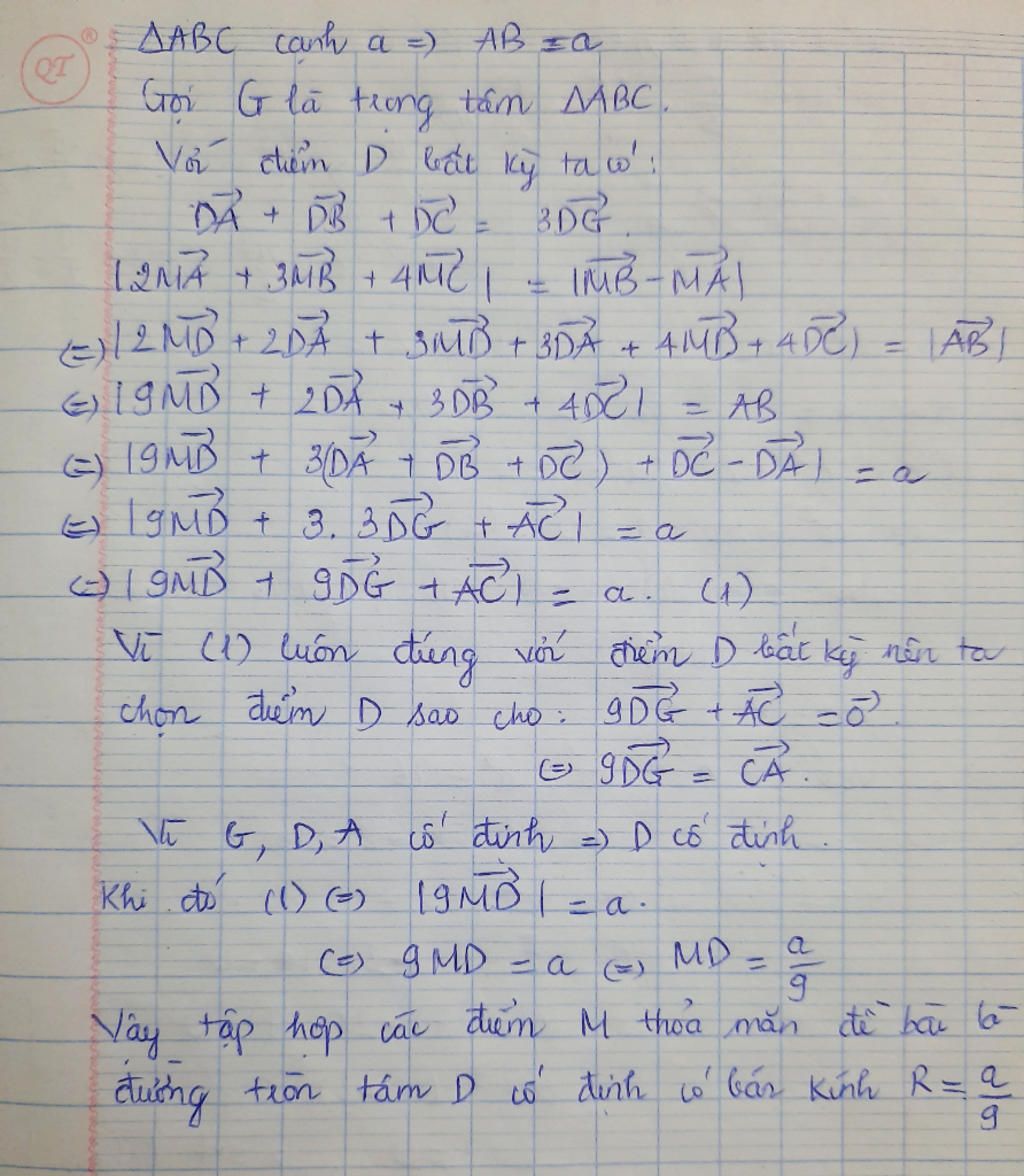 QT ®
ΔABC cạnh a => AB = a
Gọi G là trọng tâm ΔABC.
Với điểm D bất kỳ ta có:
→DA + →DB + →DC = 3→DG.
|2→MA + 3→MB + 4→MC| = |→MB - →MA|
(=) |2→MD + 2→DA + 3→MD + 3→DA + 4→MD + 4→DC| = |→AB|
(=) |9→MD + 2→DA + 3→DB + 4→DC| = AB
(=) |9→MD + 3(→DA + →DB + →DC) + →DC - →DA| = a
(=) |9→MD + 3. 3→DG + →AC| = a
(=) |9→MD + 9→DG + →AC| = a. (1)
Vì (1) luôn đúng với điểm D bất kỳ nên ta
chọn điểm D sao cho: 9→DG + →AC = →0.
(=) 9→DG = →CA.
Vì G, D, A cố định => D cố định.
Khi đó (1) (=) |9→MD| = a.
(=) 9MD = a (=) MD = a/9
Vậy tập hợp các điểm M thỏa mãn đề bài là
đường tròn tâm D cố định có bán kính R = a/9